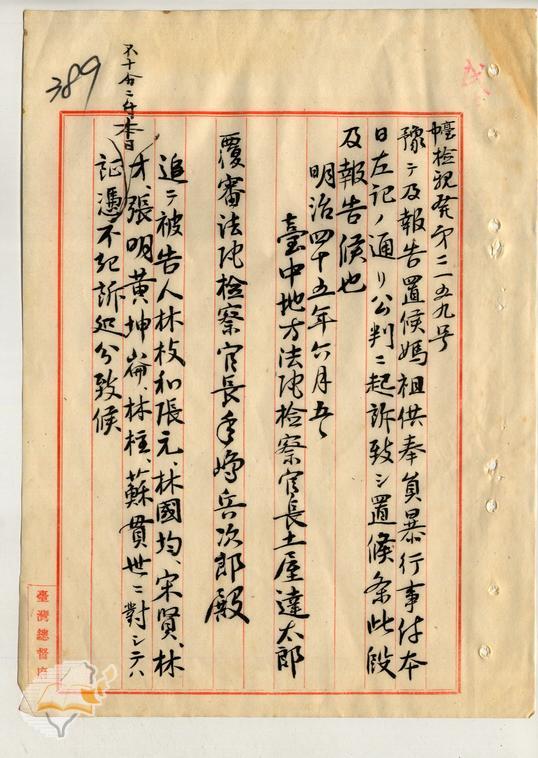 389
中臺檢親発第二一五九号
豫テ及報告置候媽祖供奉員暴行事件本
日左記ノ通リ公判ニ起訴致シ置候条此段
及報告候也
明治四十五年六月五日
臺中地方法院檢察官長土屋達太郎
覆審法院檢察官長手島兵次郎殿
追テ被告人林枝和、張元、林國均、宋賢、林
才、張明、黃坤崙、林柱、蘇貫世ニ對シテハ
本日
不十分ニ付
証憑不起訴処分致候
臺灣總督府